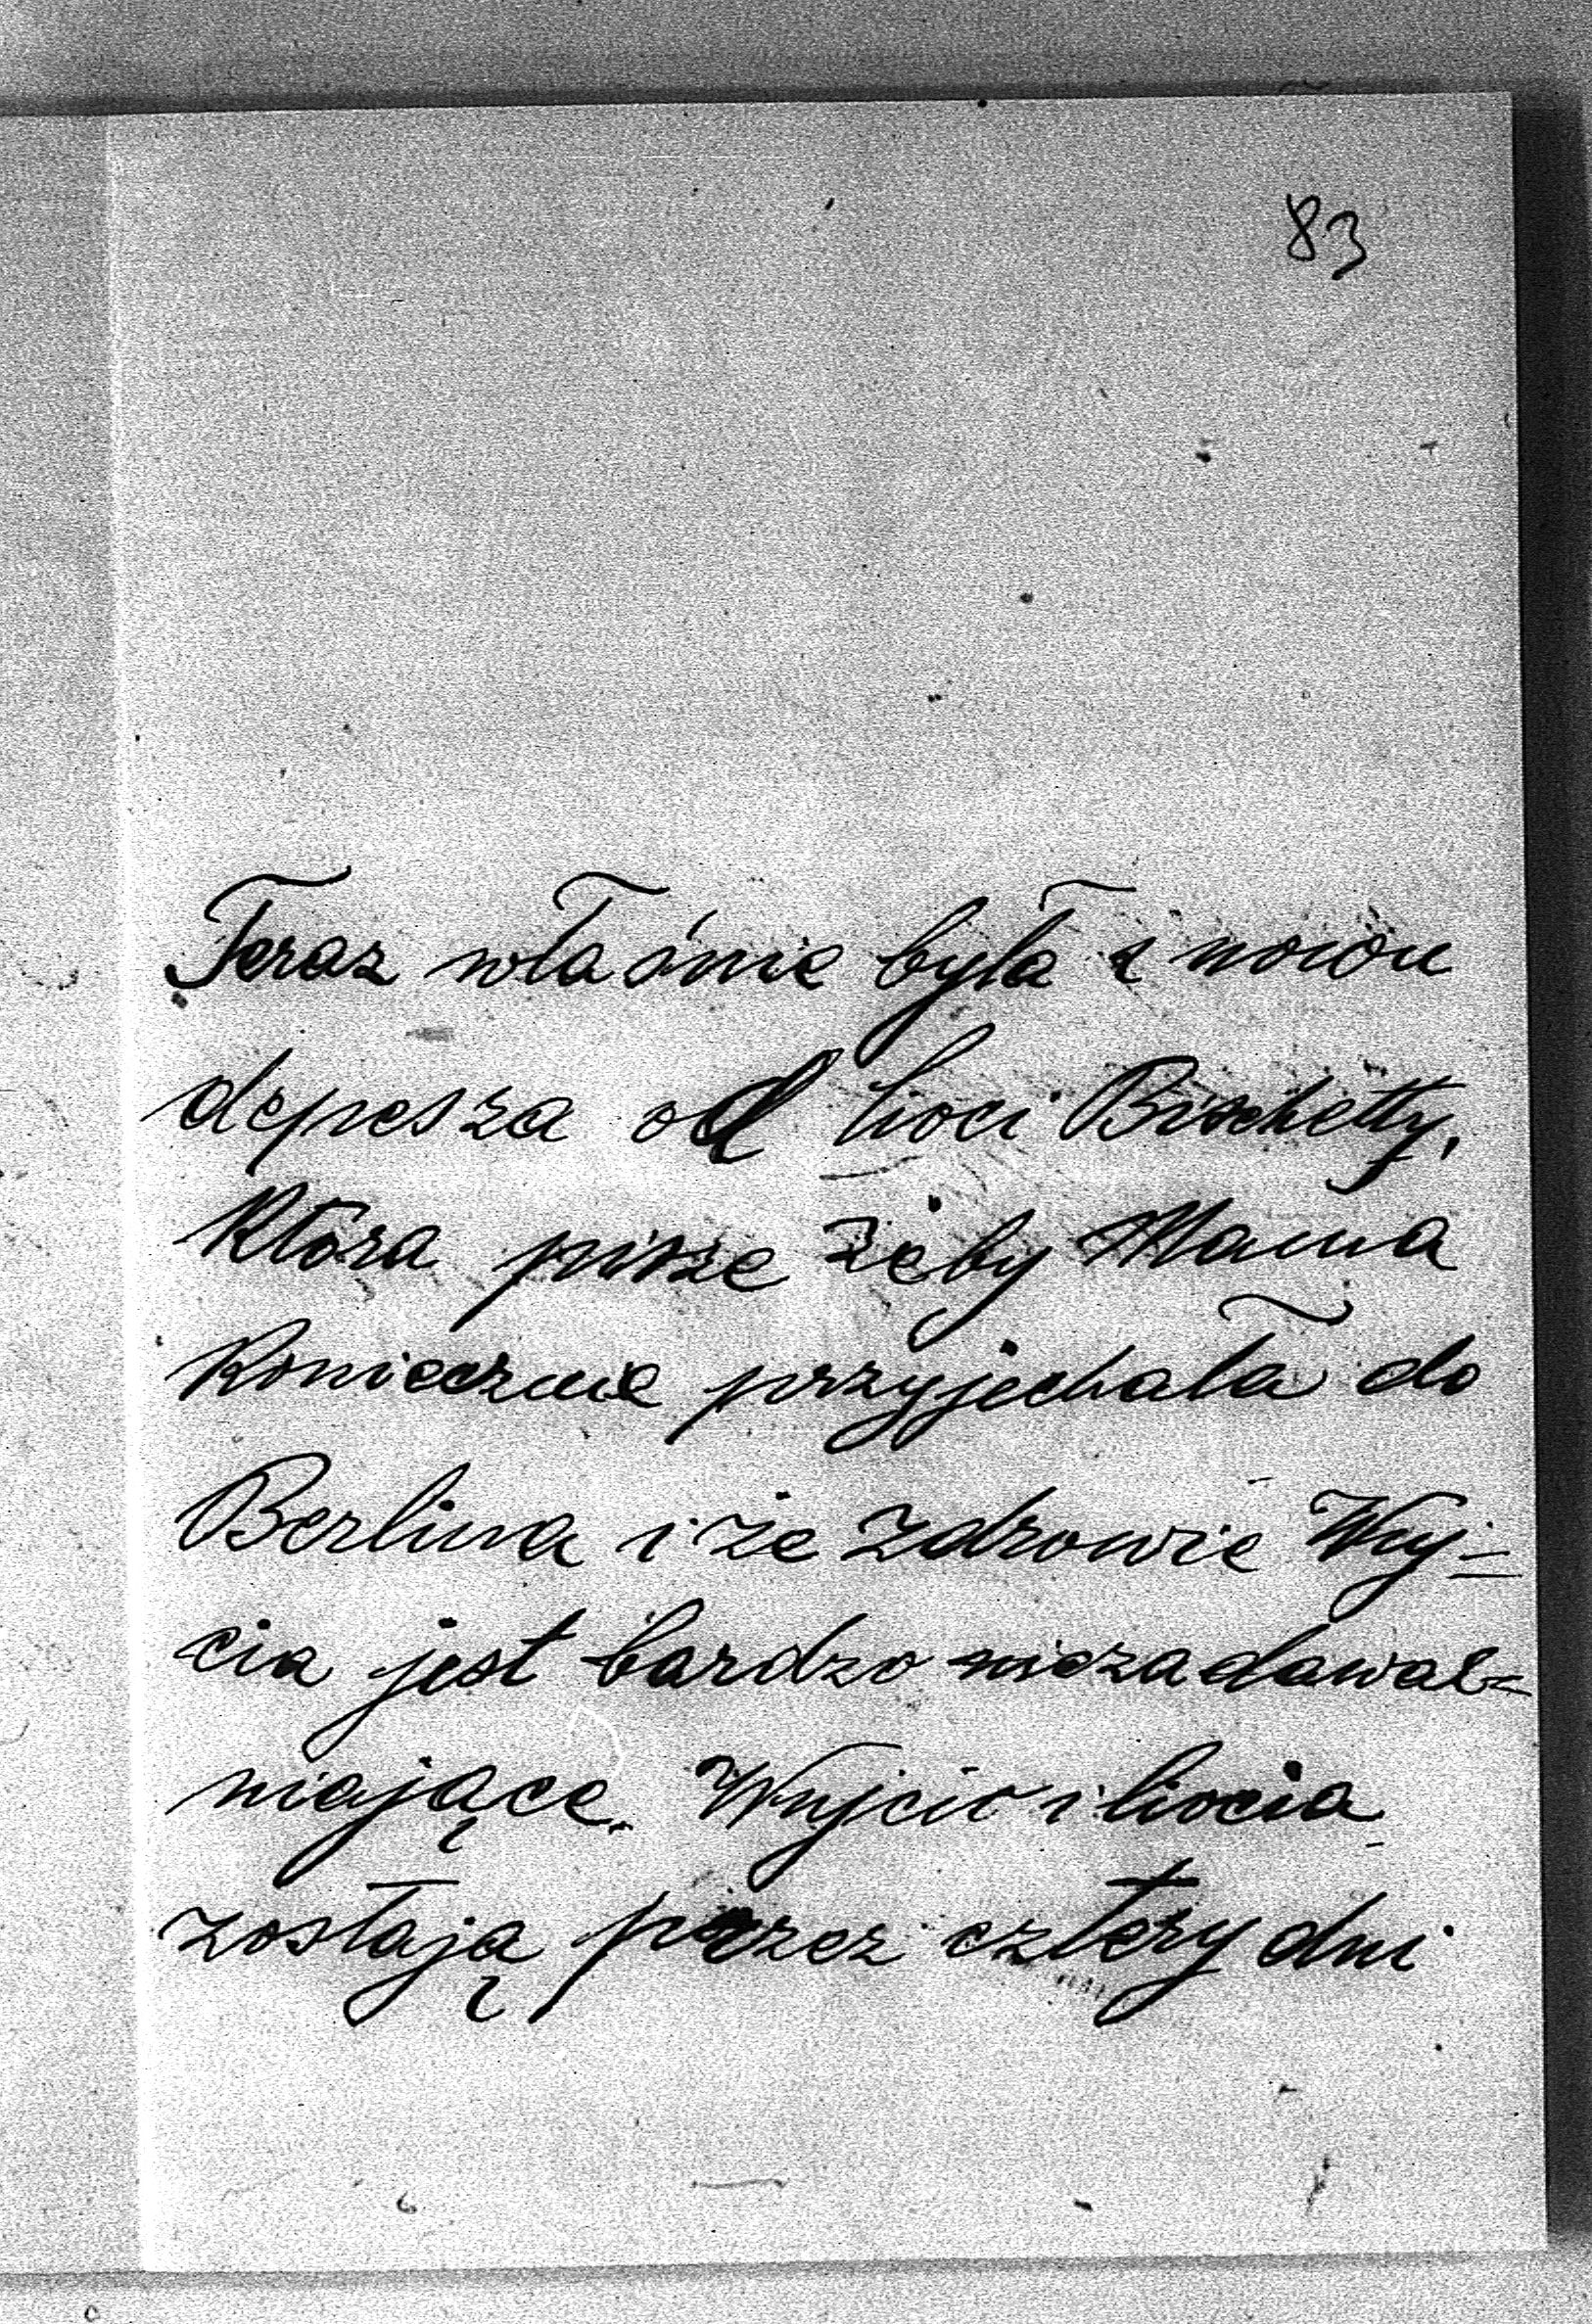 83
Teraz właśnie była z nowu
depesza od cioci Bischetty,
która pisze żeby Mama
koniecznie przyjechała do
Berlina i że zdrowie Wuj=
cia jest bardzo niezadawal=
niające. Wujcio i ciocia
zostają przez cztery dni